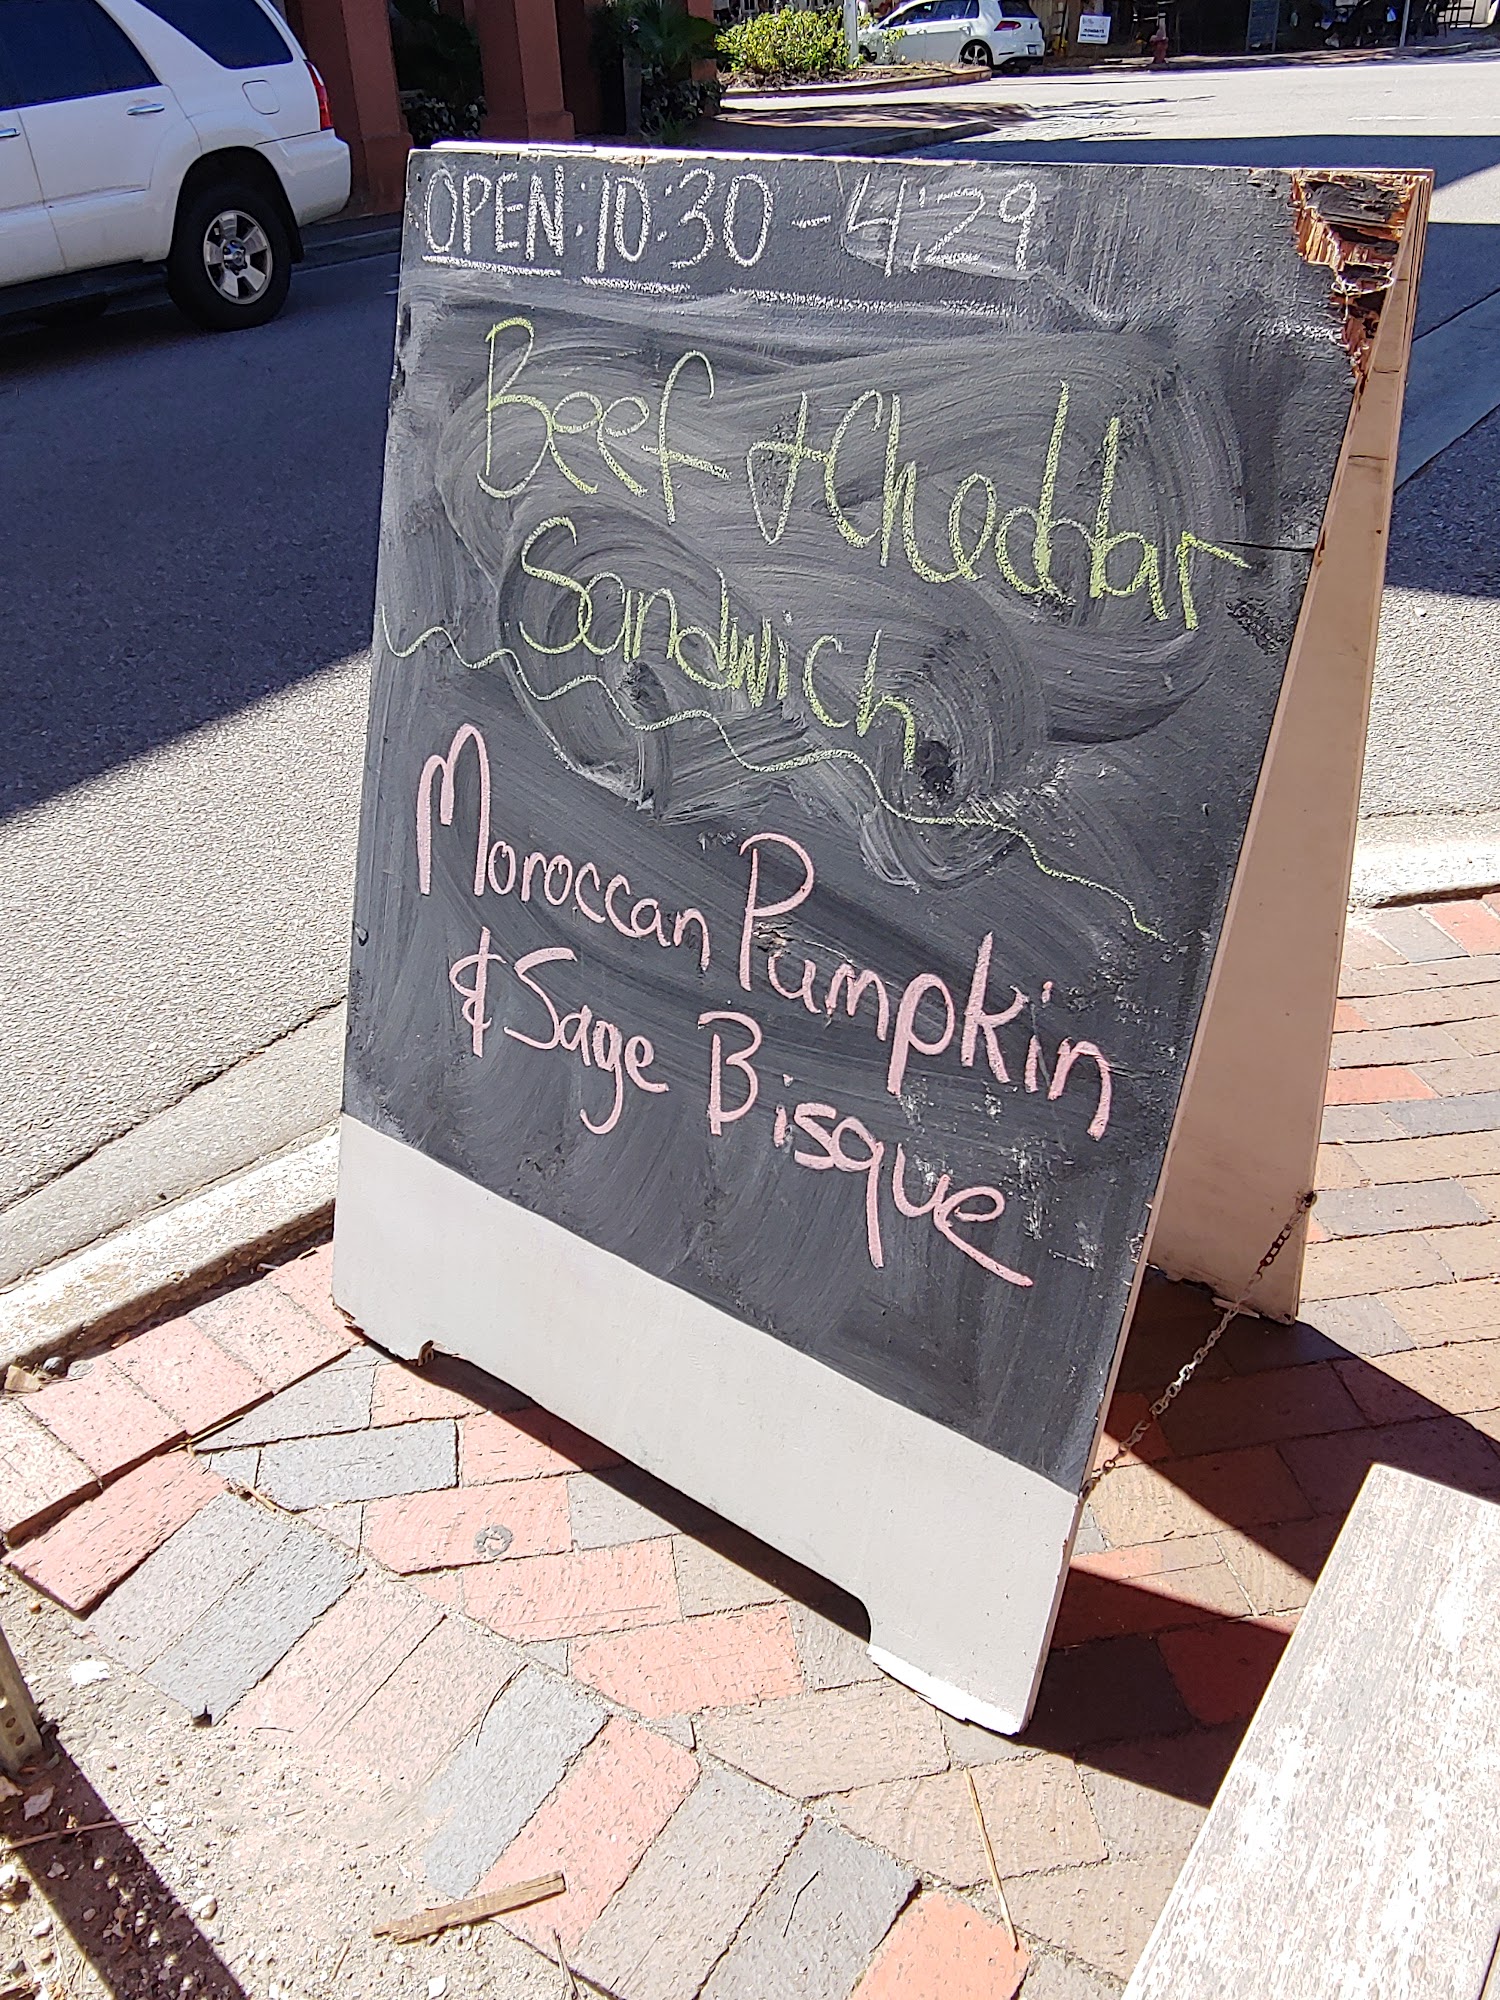 OPEN: 10:30 - 4:29
Beef + Cheddar
Sandwich
Moroccan Pumpkin
& Sage Bisque